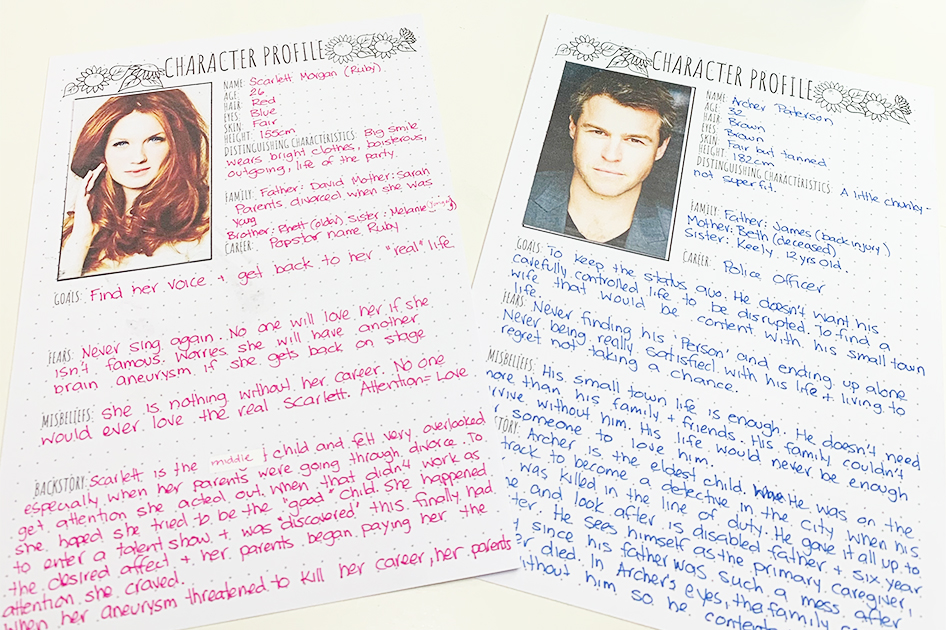 CHARACTER PROFILE
NAME: Scarlett Morgan (Ruby)
AGE: 26
HAIR: Red
EYES: Blue
SKIN: Fair
HEIGHT: 155cm
DISTINGUISHING CHARACTERISTICS: Big smile,
wears bright clothes, boisterous,
outgoing, life of the party.
FAMILY: Father: David Mother: Sarah
Parents divorced when she was
young
Brother: Rhett (older) Sister: Melanie
CAREER: Popstar name Ruby
GOALS: Find her voice + get back to her "real" life
FEARS: Never sing again. No one will love her if she
isn't famous. Worries she will have another
brain aneurysm if she gets back on stage
MISBELIEFS: She is nothing without her career. No one
would ever love the real Scarlett. Attention = Love
BACKSTORY: Scarlett is the middle child and felt very overlooked
especially when her parents were going through divorce. To
get attention she acted out. When that didn't work as
she hoped she tried to be the "good" child. She happened
to enter a talent show + was "discovered" this finally had
the desired affect + her parents began paying her the
attention she craved.
When her aneurysm threatened to kill her career, her parents
CHARACTER PROFILE
NAME: Archer Paterson
AGE: 32
HAIR: Brown
EYES: Brown
SKIN: Fair but tanned
HEIGHT: 182cm
DISTINGUISHING CHARACTERISTICS: A little chunky -
not super fit.
FAMILY: Father: James (back injury)
Mother: Beth (deceased)
Sister: Keely 12 yrs old.
CAREER: Police Officer
GOALS: To keep the status quo. He doesn't want his
carefully controlled life to be disrupted. To find a
wife that would be content with his small town
life.
FEARS: Never finding his 'Person' and ending up alone
Never being really satisfied with his life + living to
regret not taking a chance.
MISBELIEFS: His small town life is enough. He doesn't need
more than his family + friends. His family couldn't
rvive without him. His life would never be enough
r someone to love him.
STORY: Archer is the eldest child. He was on the
track to become a detective in the city when his
was killed in the line of duty. He gave it all up to
e and look after is disabled father + six year
ter. He sees himself as the primary caregiver,
t since his father was such a mess after
er died. In Archer's eyes, the family
ithout him so he
conten